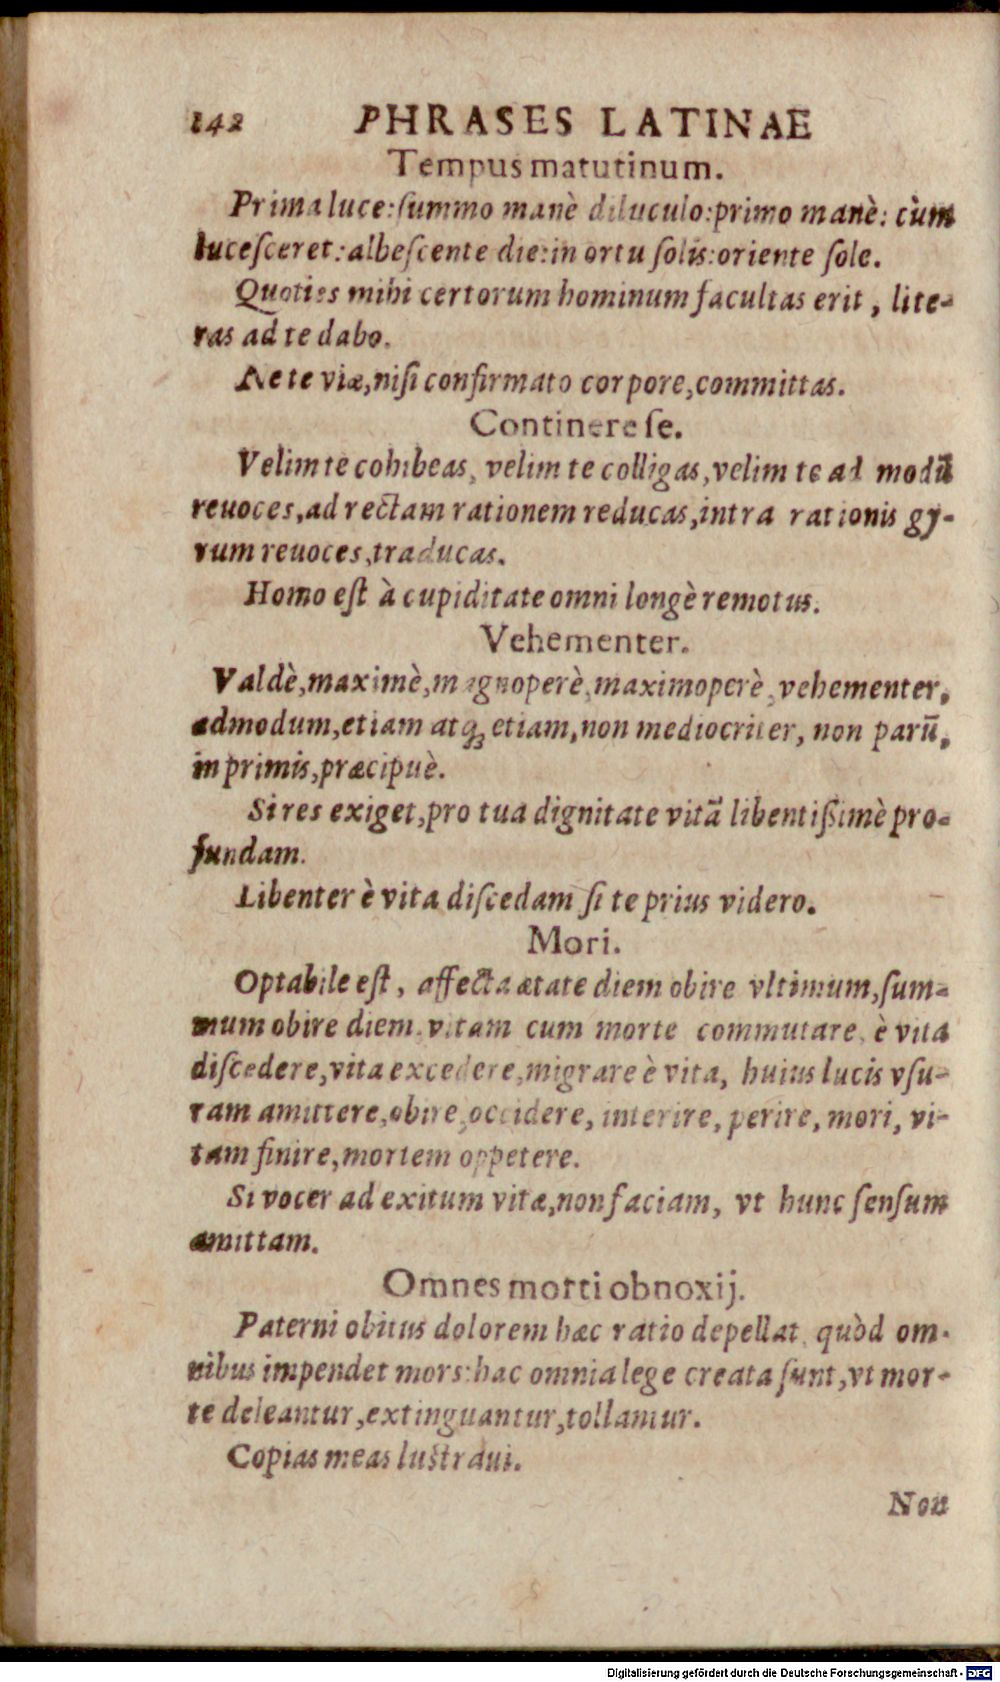 142 PHRASES LATINAE
Tempus matutinum.
Prima luce: ſummo manè diluculo: primo manè: cùm
luceſceret: albeſcente die: in ortu ſolis: oriente ſole.
Quoties mihi certorum hominum facultas erit, lite-
ras ad te dabo.
Ne te viæ, niſi confirmato corpore, committas.
Continere ſe.
Velim te cohibeas, velim te colligas, velim te ad modū
reuoces, ad rectam rationem reducas, intra rationis gy-
rum reuoces, traducas.
Homo eſt à cupiditate omni longè remotus.
Vehementer.
Valdè, maximè, magnoperè, maximoperè, vehementer,
admodum, etiam atq; etiam, non mediocriter, non parū,
in primis, præcipuè.
Si res exiget, pro tua dignitate vitā libentißimè pro-
fundam.
Libenter è vita diſcedam ſi te prius videro.
Mori.
Optabile eſt, affecta ætate diem obire vltimum, ſum-
mum obire diem, vitam cum morte commutare, è vita
diſcedere, vita excedere, migrare è vita, huius lucis vſu-
ram amittere, obire, occidere, interire, perire, mori, vi-
tam finire, mortem oppetere.
Si vocer ad exitum vitæ, non faciam, vt hunc ſenſum
amittam.
Omnes morti obnoxij.
Paterni obitus dolorem hæc ratio depellat, quòd om-
nibus impendet mors: hac omnia lege creata ſunt, vt mor-
te deleantur, extinguantur, tollantur.
Copias meas luſtraui.
Non
Digitalisierung gefördert durch die Deutsche Forschungsgemeinschaft - DFG